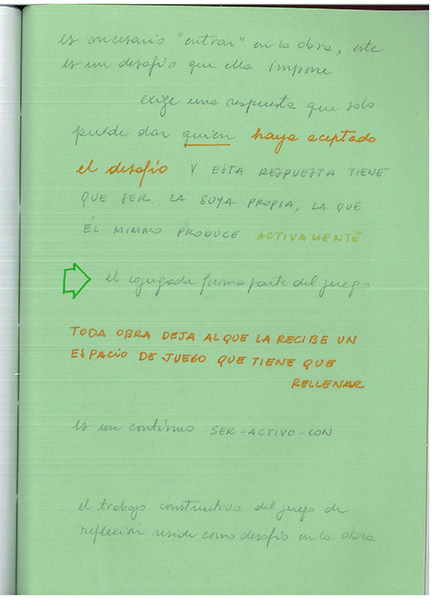 es necesario "entrar" en la obra, este
es un desafío que ella impone
exige una respuesta que solo
puede dar quien haya aceptado
el desafío Y ESTA RESPUESTA TIENE
QUE SER LA SUYA PROPIA, LA QUE
ÉL MIMMO PRODUCE ACTIVAMENTE
el cojugador forma parte del juego
TODA OBRA DEJA AL QUE LA RECIBE UN
ESPACIO DE JUEGO QUE TIENE QUE
RELLENAR
es un continuo SER-ACTIVO-CON
el trabajo constructivo del juego de
reflección reside como desafío en la obra